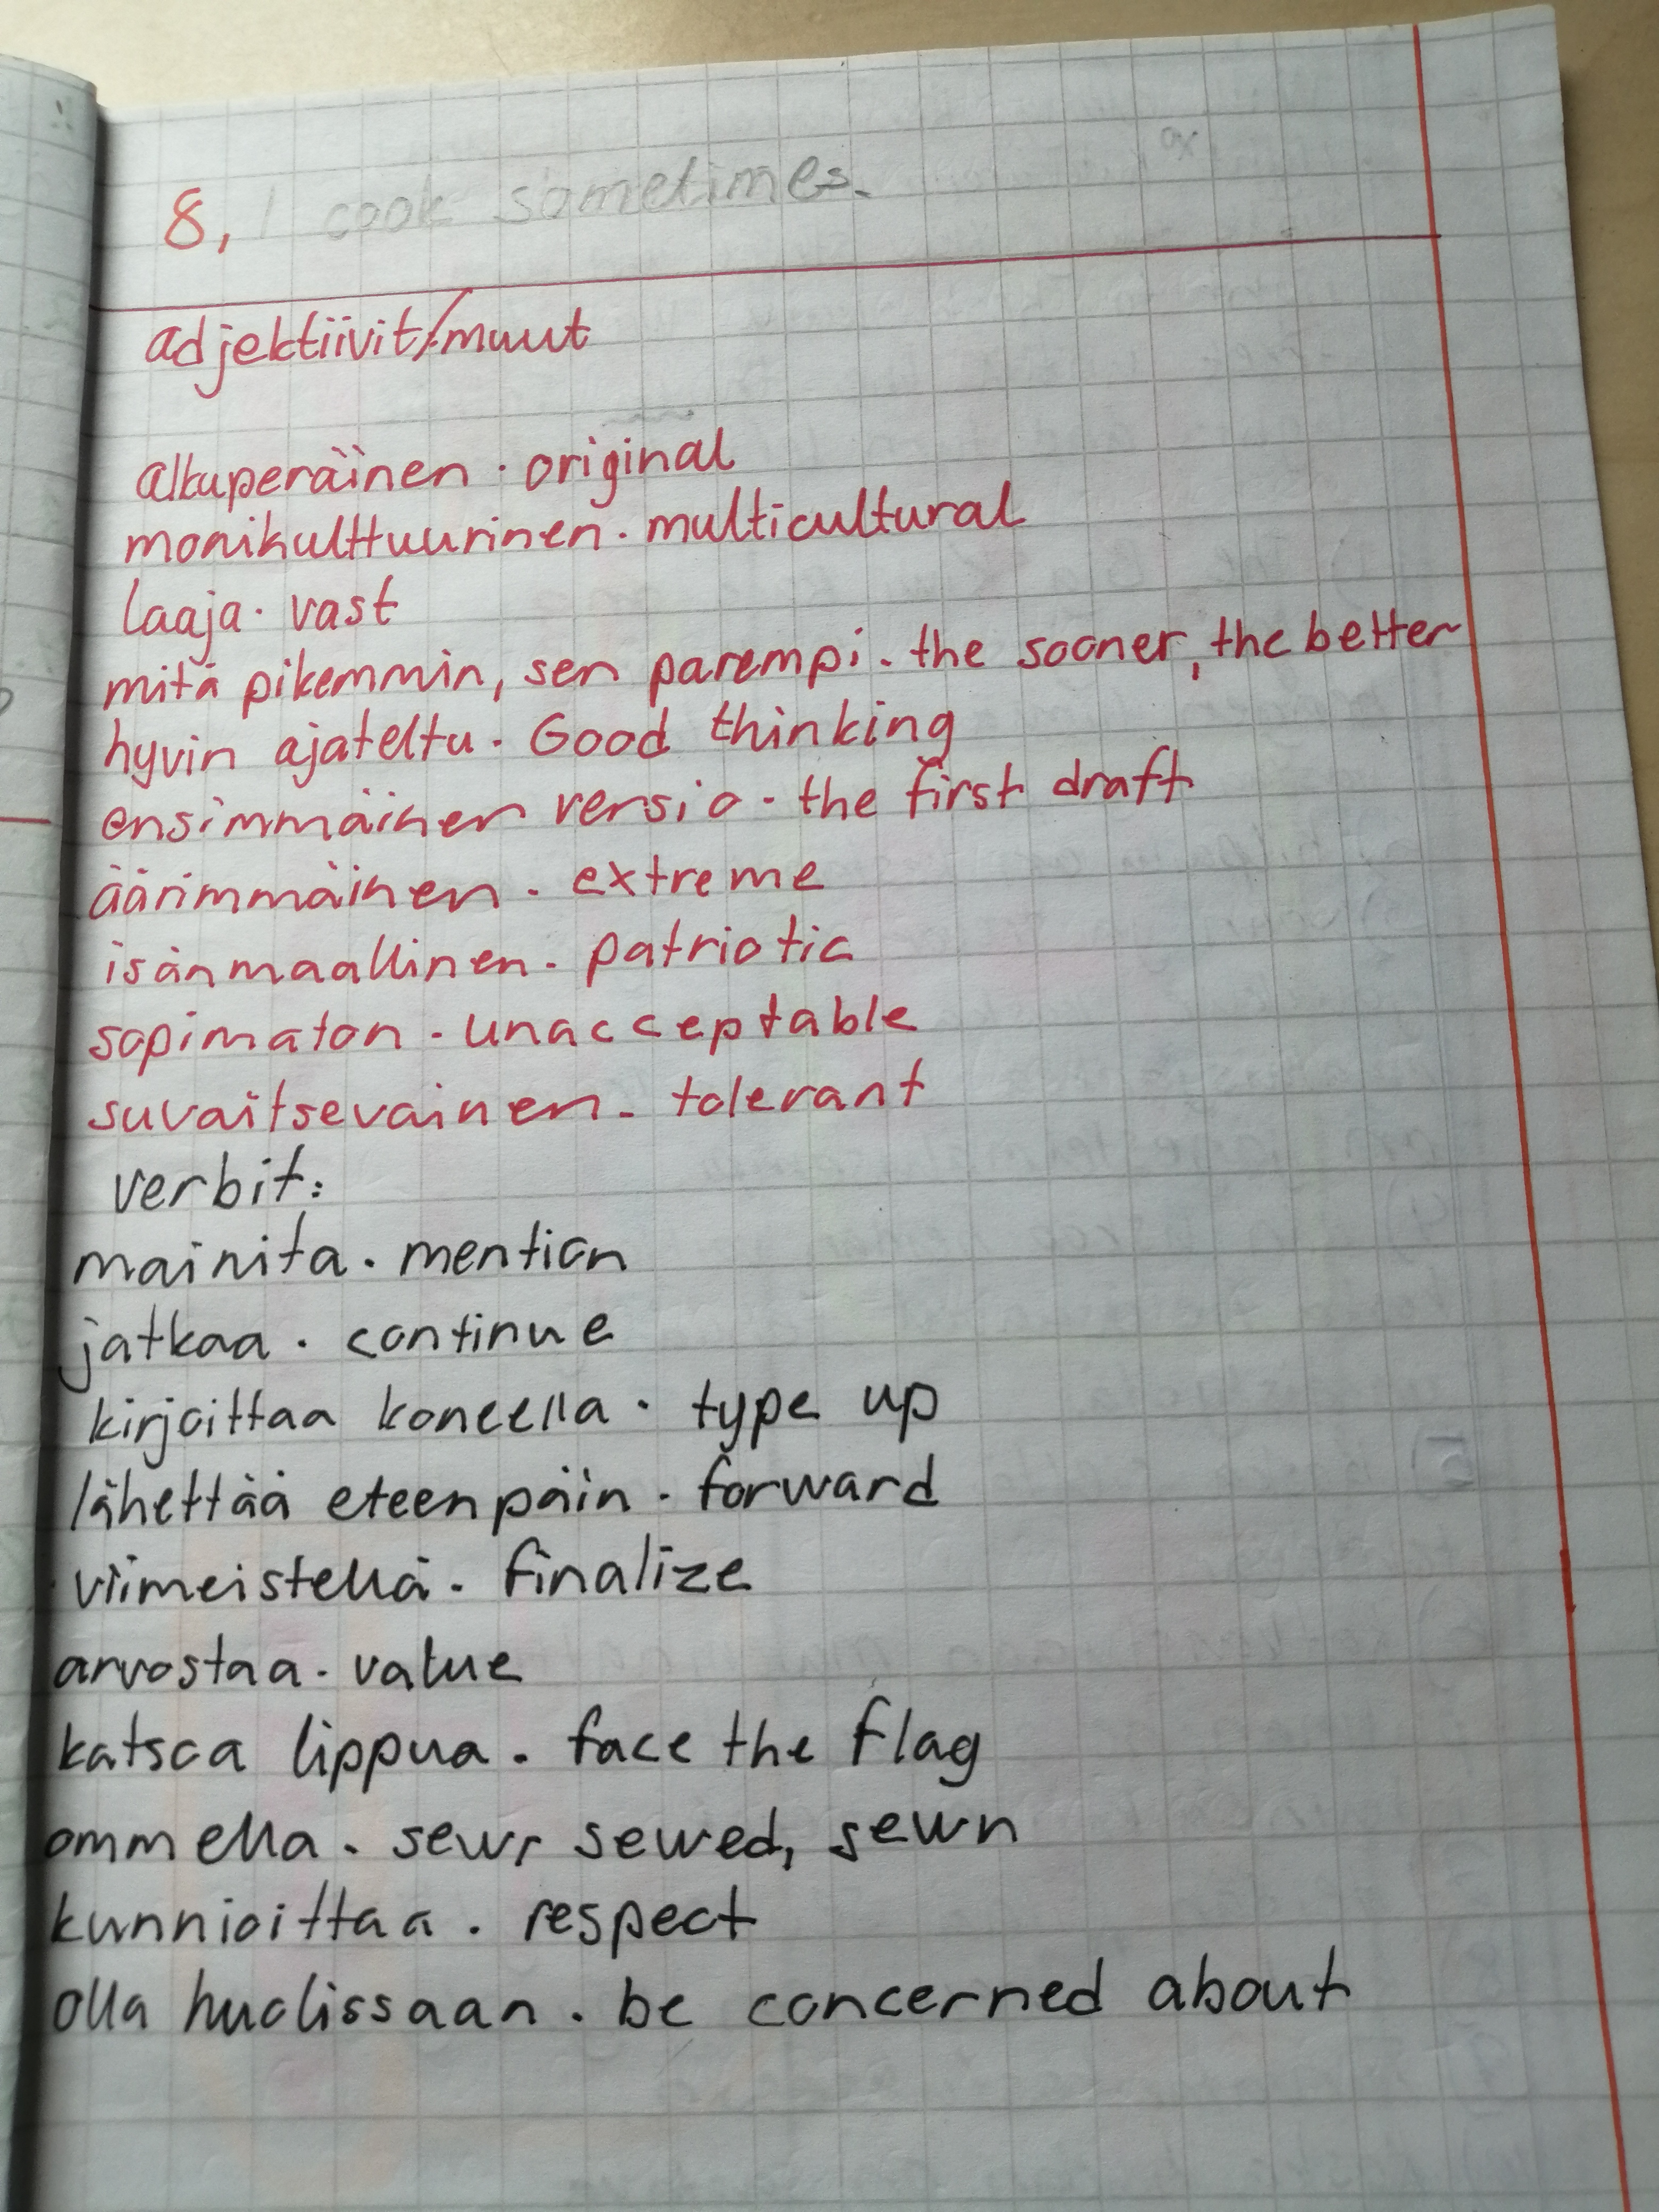 8, I cook sometimes.
adjektiivit/muut
alkuperäinen · original
monikulttuurinen · multicultural
laaja · vast
mitä pikemmin, sen parempi · the sooner, the better
hyvin ajateltu · Good thinking
ensimmäinen versio · the first draft
äärimmäinen · extreme
isänmaallinen · patriotic
sopimaton · unacceptable
suvaitsevainen · tolerant
verbit:
mainita · mention
jatkaa · continue
kirjoittaa koneella · type up
lähettää eteenpäin · forward
viimeistellä · finalize
arvostaa · value
katsoa lippua · face the flag
ommella · sew, sewed, sewn
kunnioittaa · respect
olla huolissaan · be concerned about